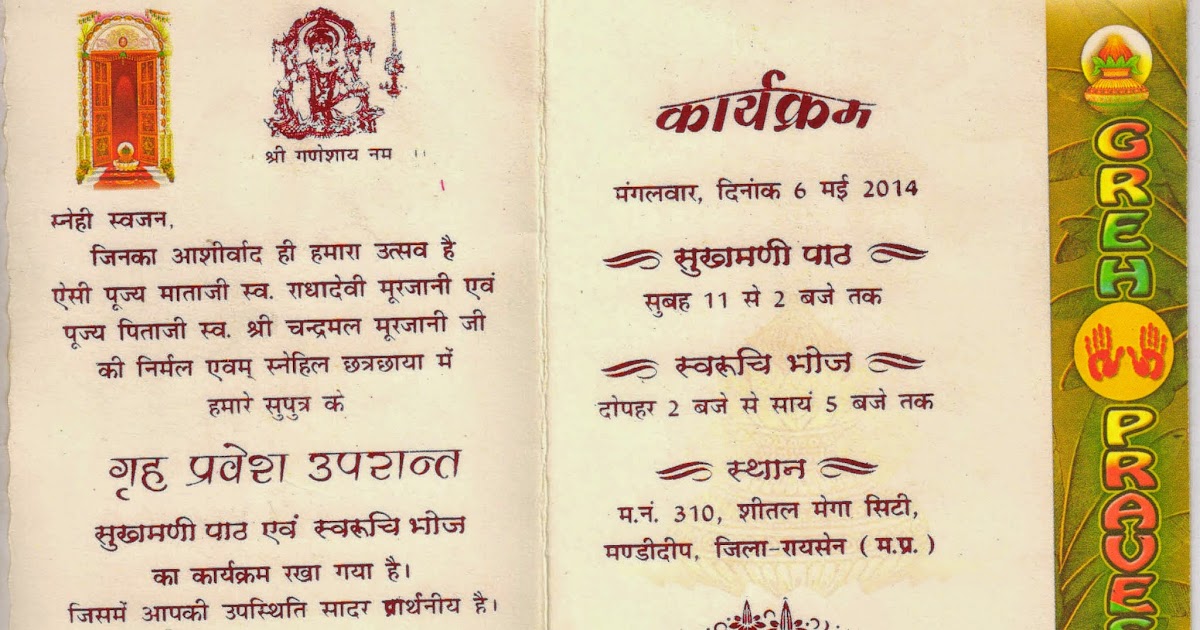 श्री गणेशाय नम ।।
स्नेही स्वजन,
जिनका आशीर्वाद ही हमारा उत्सव है
ऐसी पूज्य माताजी स्व. राधादेवी मूरजानी एवं
पूज्य पिताजी स्व. श्री चन्द्रमल मूरजानी जी
की निर्मल एवम् स्नेहिल छत्रछाया में
हमारे सुपुत्र के
गृह प्रवेश उपरान्त
सुखमणी पाठ एवं स्वरूचि भोज
का कार्यक्रम रखा गया है।
जिसमें आपकी उपस्थिति सादर प्रार्थनीय है।
कार्यक्रम
मंगलवार, दिनांक 6 मई 2014
सुखमणी पाठ
सुबह 11 से 2 बजे तक
स्वरूचि भोज
दोपहर 2 बजे से सायं 5 बजे तक
स्थान
म.नं. 310, शीतल मेगा सिटी,
मण्डीदीप, जिला-रायसेन ( म.प्र. )
GREH
PRAVES